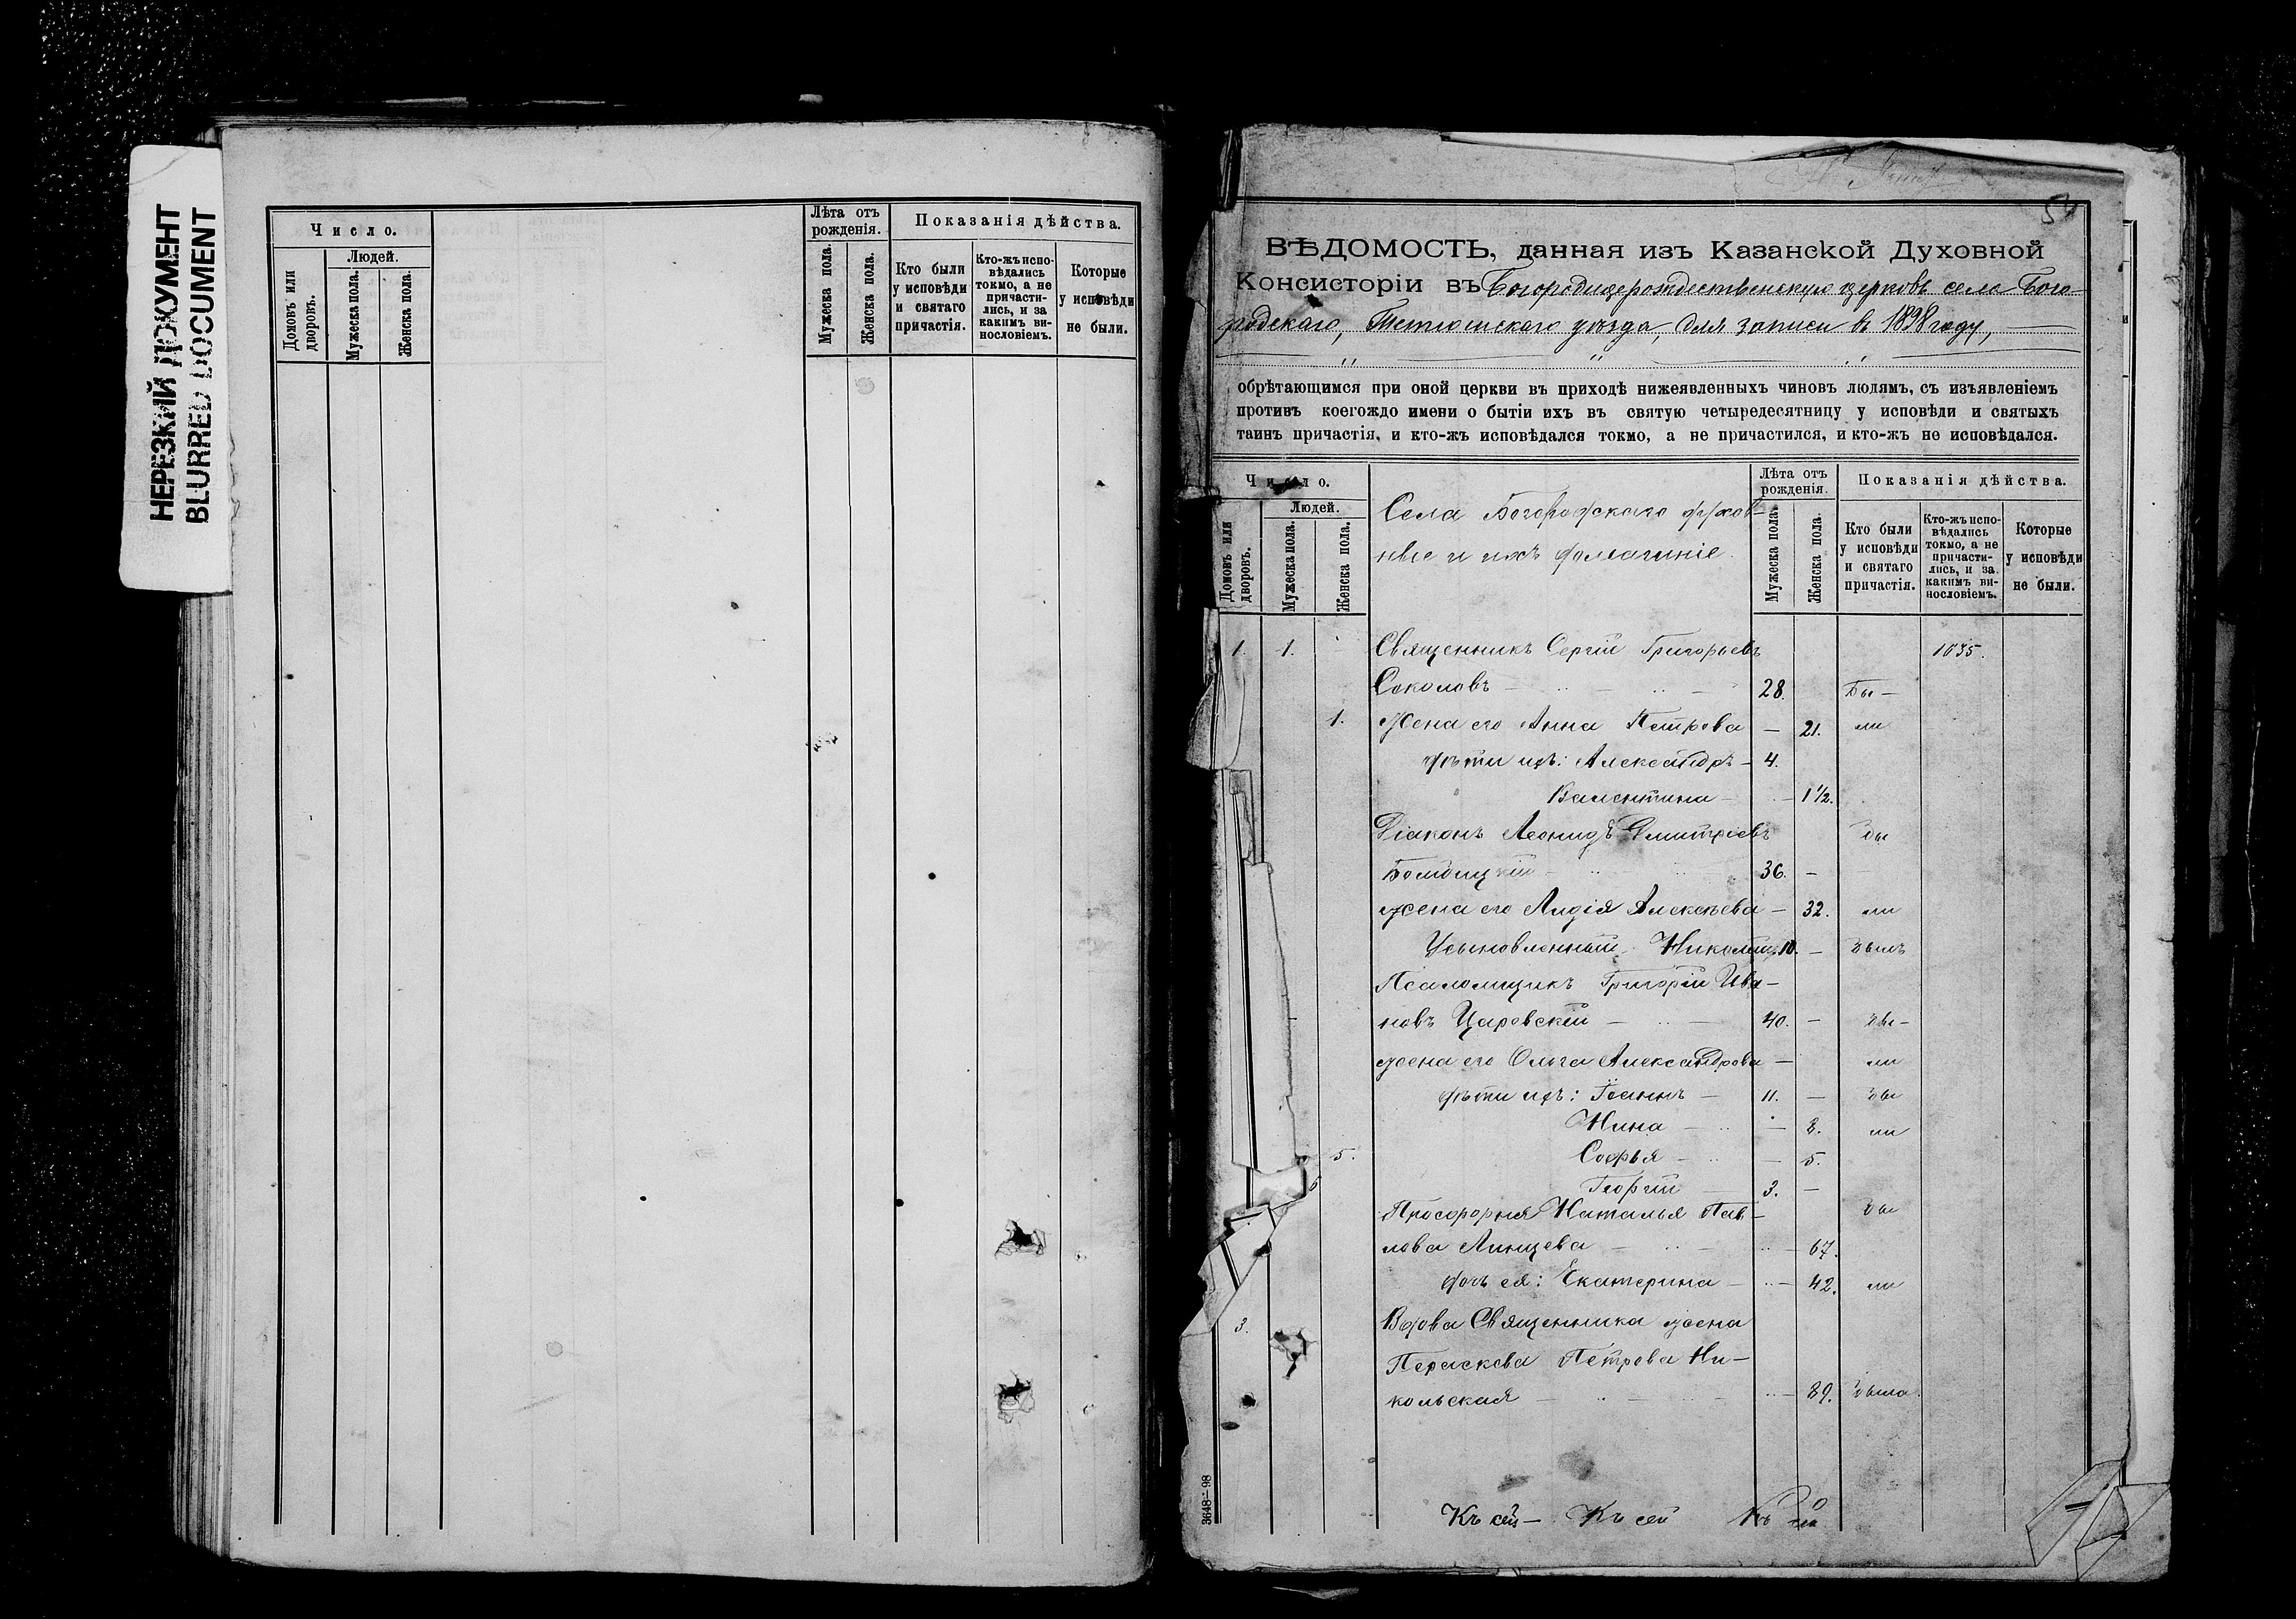 НЕРЕЗКИЙ ДОКУМЕНТ
BLURRED DOCUMENT
Число.
Домовъ или дворовъ.
Людей.
Мужеска пола.
Женска пола.
Лѣта отъ рожденія.
Мужеска пола.
Женска пола.
Показанія дѣйства.
Кто были у исповѣди и святаго причастія.
Кто-жъ испо-вѣдались токмо, а не причасти-лись, и за какимъ ви-нословіемъ.
Которые у исповѣди не были.
ВѢДОМОСТЬ, данная изъ Казанской Духовной
Консисторіи въ Богородицерождественскую церковь села Бого-
родскаго, Тетюшскаго уѣзда, для записи въ 1898 году,
обрѣтающимся при оной церкви въ приходѣ нижеявленныхъ чиновъ людямъ, съ изъявленіемъ
противъ коегождо имени о бытіи ихъ въ святую четыредесятницу у исповѣди и святыхъ
таинъ причастія, и кто-жъ исповѣдался токмо, а не причастился, и кто-жъ не исповѣдался.
Число.
Домовъ или дворовъ.
Людей.
Мужеска пола.
Женска пола.
Села Богородскаго духов-
ные и ихъ домашніе.
Лѣта отъ рожденія.
Мужеска пола.
Женска пола.
Показанія дѣйства.
Кто были у исповѣди и святаго причастія.
Кто-жъ испо-вѣдались токмо, а не причасти-лись, и за какимъ ви-нословіемъ.
Которые у исповѣди не были.
1. 1. Священникъ Сергій Григорьевъ 1035.
Соколовъ 28. Бы-
1. Жена его Анна Петрова — 21. ли
дѣти ихъ: Александръ — 4.
Валентина — 1 1/2.
Діаконъ Леонидъ Дмитріевъ бы
36. —
жена его Лидія Алексѣева — 32. ли
Усыновленный Николай 10. — былъ
Псаломщикъ Григорій Ива-
новъ Царевскій — 40. — бы-
жена его Ольга Александрова — ли
дѣти ихъ: Іоаннъ — 11. — бы
Нина — 8. ли
5. Софья — 5.
Георгій 3. —
Просфорня Наталья Пав- бы
лова — 67.
дочь ея: Екатерина — 42. ли
3. Вдова Священника жена
Параскева Петрова Ни-
кольская — 89. была.
Къ сей — Къ сей Къ
3648—98